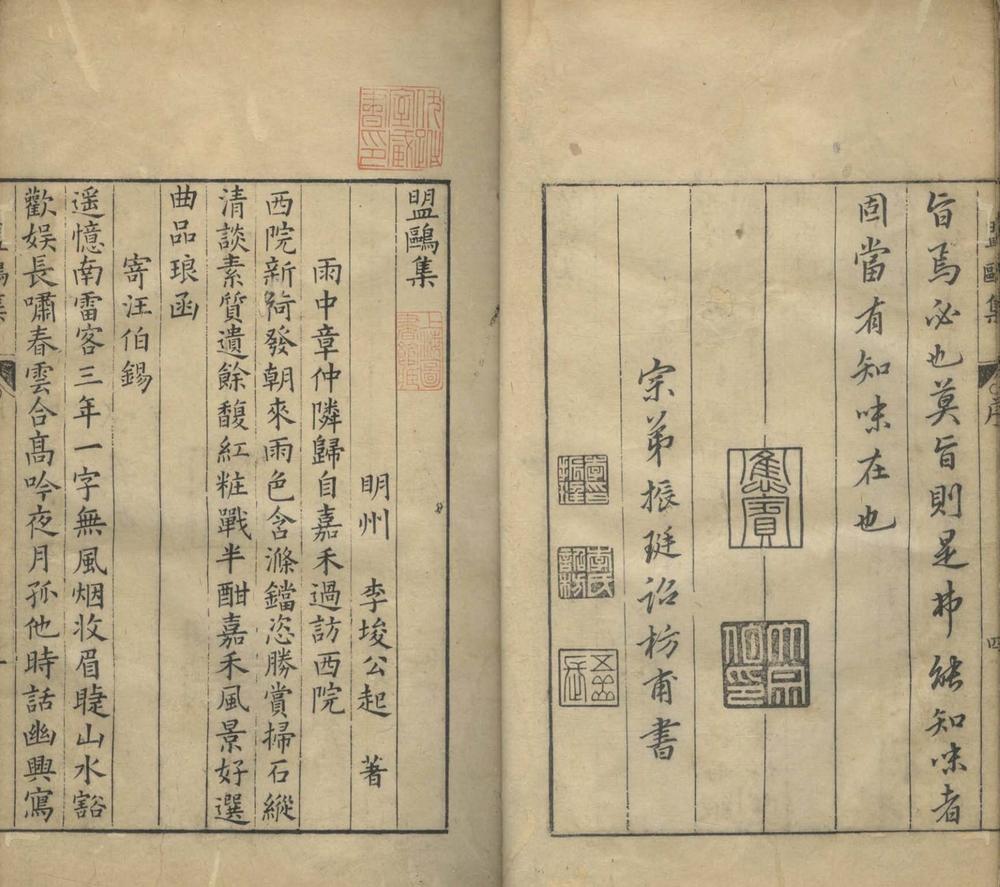 旨焉必也莫旨則是弗能知味者
固當有知味在也
宗弟振珽詒枋甫書
盟鷗集
明州　李埈公起　著
雨中章仲隣歸自嘉禾過訪西院
西院新綺發朝來雨色含滌鐺恣勝賞掃石縱
清談素質遺餘馥紅粧戰半酣嘉禾風景好選
曲品琅函
寄汪伯錫
遥憶南雷客三年一字無風烟收眉睫山水豁
歡娱長嘯春雲合高吟夜月孤他時話幽興寫